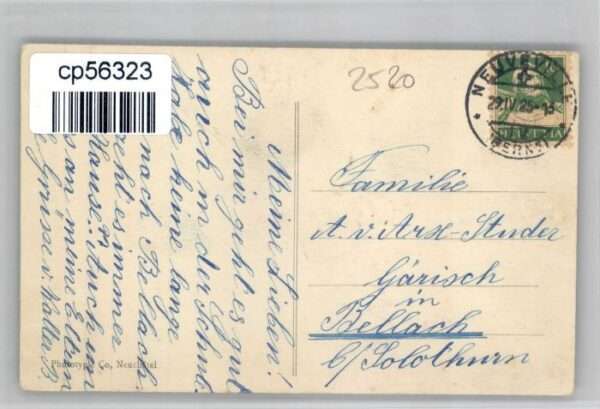 cp56323
2520
NEUVEVILLE
29.IV.25
(BERN)
HELVETIA
Meine Lieben!
Bei mir geht es gut
auch in der Schule.
Habe keine lange
nach Bellach.
geht es immer
Hause. Auch
an meine Eltern
Grüsse v.
Familie
A. v. Arx-Studer
Gärisch
in
Bellach
b/Solothurn
Phototypie Co, Neuchâtel